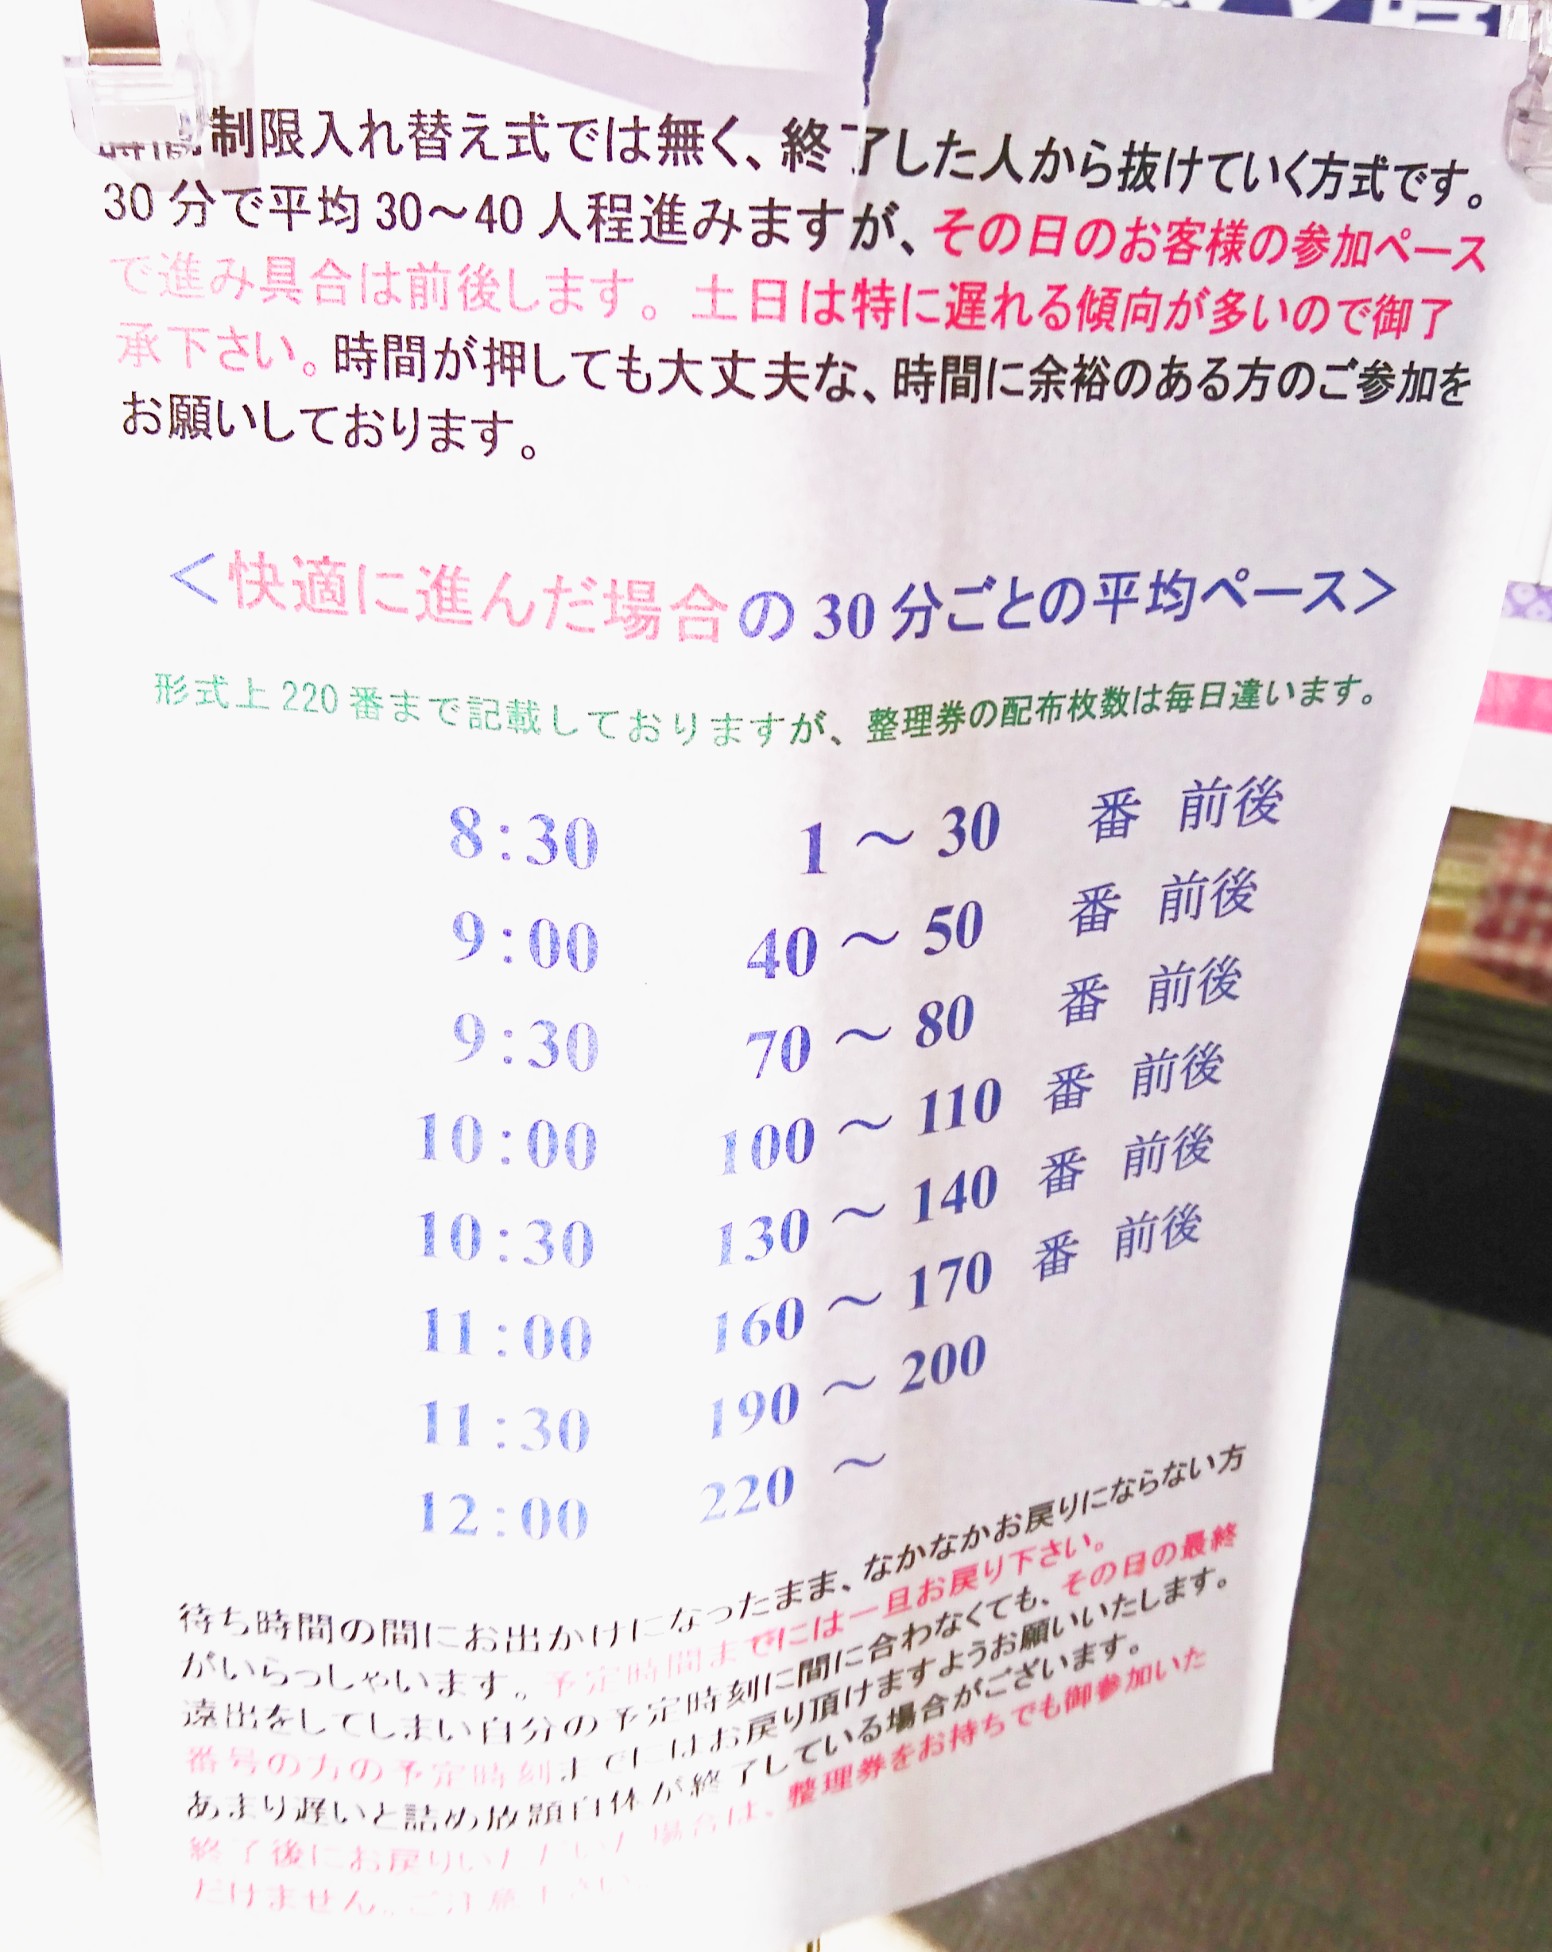 制限入れ替え式では無く、終了した人から抜けていく方式です。
30分で平均30～40人程進みますが、その日のお客様の参加ペース
で進み具合は前後します。土日は特に遅れる傾向が多いので御了
承下さい。時間が押しても大丈夫な、時間に余裕のある方のご参加を
お願いしております。
＜快適に進んだ場合の30分ごとの平均ペース＞
形式上220番まで記載しておりますが、整理券の配布枚数は毎日違います。
8:30 1～30 番 前後
9:00 40～50 番 前後
9:30 70～80 番 前後
10:00 100～110 番 前後
10:30 130～140 番 前後
11:00 160～170 番 前後
11:30 190～200
12:00 220～
待ち時間の間にお出かけになったまま、なかなかお戻りにならない方
がいらっしゃいます。予定時間までには一旦お戻り下さい。
遠出をしてしまい自分の予定時刻に間に合わなくても、その日の最終
番号の方の予定時刻までにはお戻り頂けますようお願いいたします。
あまり遅いと詰め放題自体が終了している場合がございます。
終了後にお戻りいただいた場合は、整理券をお持ちでも御参加いた
だけません。ご注意下さい。